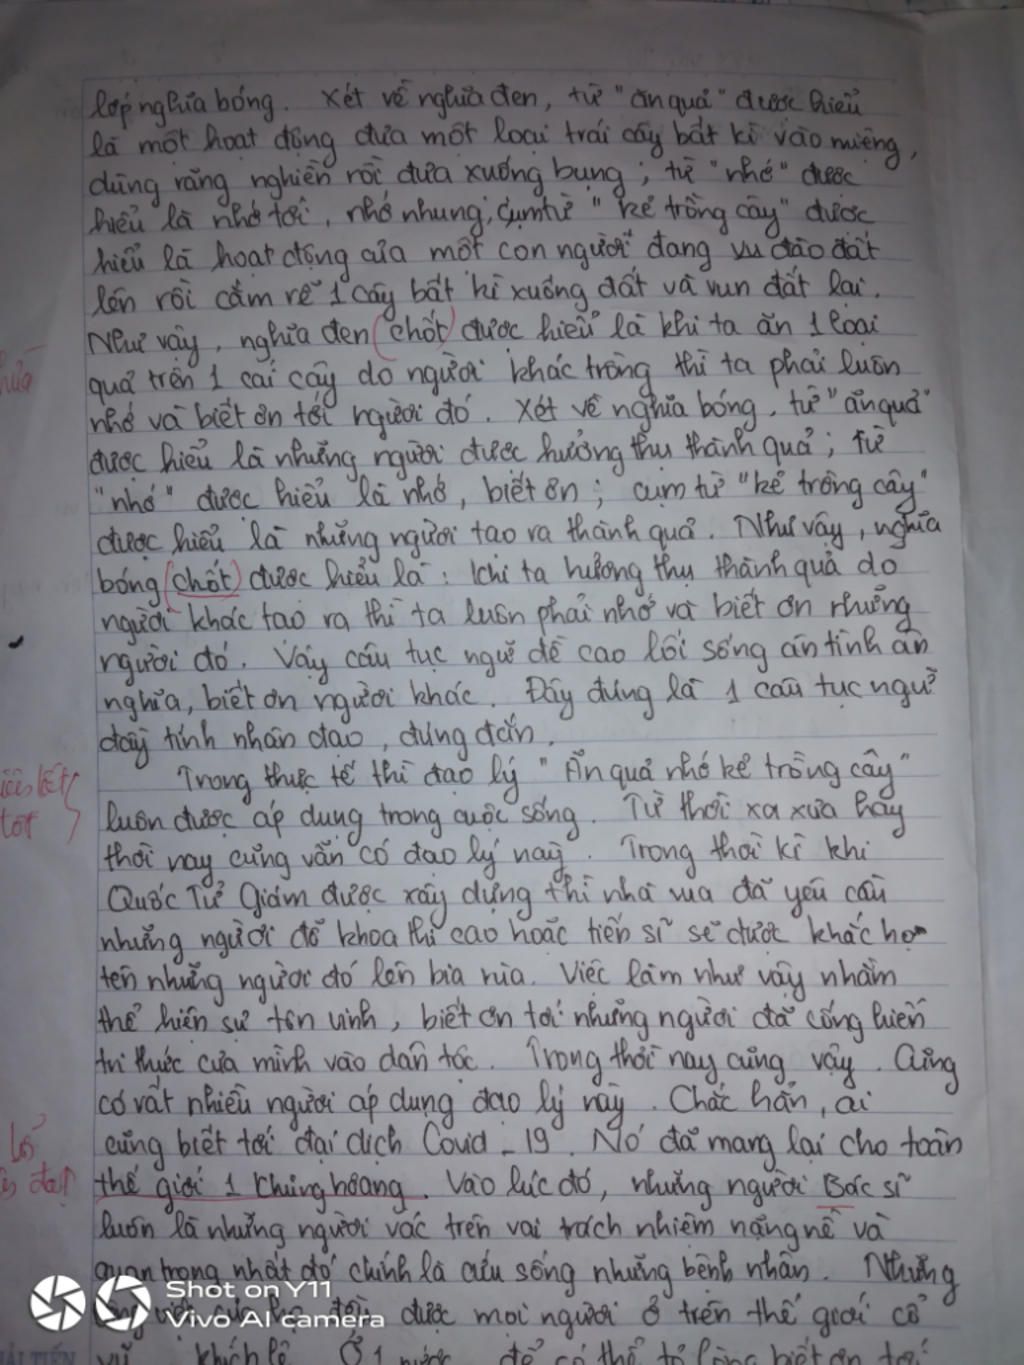 lớp nghĩa bóng. Xét về nghĩa đen, từ "ăn quả" được hiểu
là một hoạt động đưa một loại trái cây bất kì vào miệng,
dùng răng nghiền rồi đưa xuống bụng; từ "nhớ" được
hiểu là nhớ tới, nhớ nhung; cụm từ "kẻ trồng cây" được
hiểu là hoạt động của một con người đang đào đất
lên rồi cắm rễ 1 cây bất kì xuống đất và vun đất lại.
Như vậy, nghĩa đen (chốt) được hiểu là khi ta ăn 1 loại
quả trên 1 cái cây do người khác trồng thì ta phải luôn
nhớ và biết ơn tới người đó. Xét về nghĩa bóng, từ "ăn quả"
được hiểu là những người được hưởng thụ thành quả; từ
"nhớ" được hiểu là nhớ, biết ơn; cụm từ "kẻ trồng cây"
được hiểu là những người tạo ra thành quả. Như vậy, nghĩa
bóng (chốt) được hiểu là: khi ta hưởng thụ thành quả do
người khác tạo ra thì ta luôn phải nhớ và biết ơn những
người đó. Vậy câu tục ngữ đề cao lối sống ân tình ân
nghĩa, biết ơn người khác. Đây đúng là 1 câu tục ngữ
đầy tính nhân đạo, đúng đắn.
Trong thực tế thì đạo lý "Ăn quả nhớ kẻ trồng cây"
luôn được áp dụng trong cuộc sống. Từ thời xa xưa hay
thời nay cũng vẫn có đạo lý này. Trong thời kì khi
Quốc Tử Giám được xây dựng thì nhà vua đã yêu cầu
những người đỗ khoa thi cao hoặc tiến sĩ sẽ được khắc họ
tên những người đó lên bia rùa. Việc làm như vậy nhằm
thể hiện sự tôn vinh, biết ơn tới những người đã cống hiến
tri thức của mình vào dân tộc. Trong thời nay cũng vậy. Cũng
có rất nhiều người áp dụng đạo lý này. Chắc hẳn, ai
cũng biết tới đại dịch Covid-19. Nó đã mang lại cho toàn
thế giới 1 khủng hoảng. Vào lúc đó, những người Bác sĩ
luôn là những người vác trên vai trách nhiệm nặng nề và
quan trọng nhất đó chính là cứu sống những bệnh nhân. Những
được mọi người ở trên thế giới cổ
vũ khích lệ. Ở 1 nước để có thể tỏ lòng biết ơn tới
Shot on Y11
Vivo AI camera